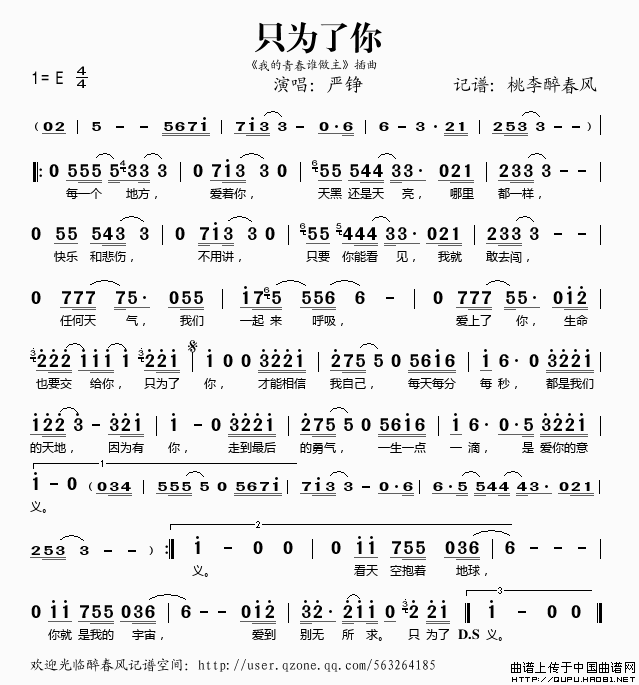 只为了你
《我的青春谁做主》插曲
1= E 4/4 演唱：严铮 记谱：桃李醉春风
( 02 | 5 - - 5671̇ | 71̇3̇ 3̇ - 0·6 | 6 - 3·21 | 253 3 - - |
‖: 0 555 5 4 33 3 | 0 71̇3̇ 3̇ 0 | 6 55 544 33· 021 | 233 3 - - |
每一个 地方， 爱着你， 天黑 还是天 亮， 哪里 都一样，
0 55 543 3 | 0 71̇3̇ 3̇ 0 | 6 55 5 444 33· 021 | 233 3 - - |
快乐 和悲伤， 不用讲， 只要 你能看 见， 我就 敢去闯，
0 777 75· 055 | 1̇76 5 556 6 - | 0 777 55· 01̇2̇ |
任何天 气， 我们 一起 来 呼吸， 爱上了 你， 生命
也要交 给你， 只为了 你， 才能相信 我自己， 每天每分 每 秒， 都是我们
的天地， 因为有 你， 走到最后 的勇气， 一生一点 一 滴， 是 爱你的意
1
1̇ - 0 ( 034 | 555 5 0 5671̇ | 71̇3̇ 3̇ - 0·6 | 6·5 544 43· 021 |
义。
2
253 3 - - ) :‖ 1̇ - 0 0 | 0 1̇1̇ 755 036 | 6 - - - |
义。 看天 空抱着 地球，
3
你就 是我的 宇宙， 爱到 别无 所 求。 只 为了 D.S 义。
欢迎光临醉春风记谱空间：http://user.qzone.qq.com/563264185
曲谱上传于中国曲谱网
HTTP://QUPU.HAO81.NET